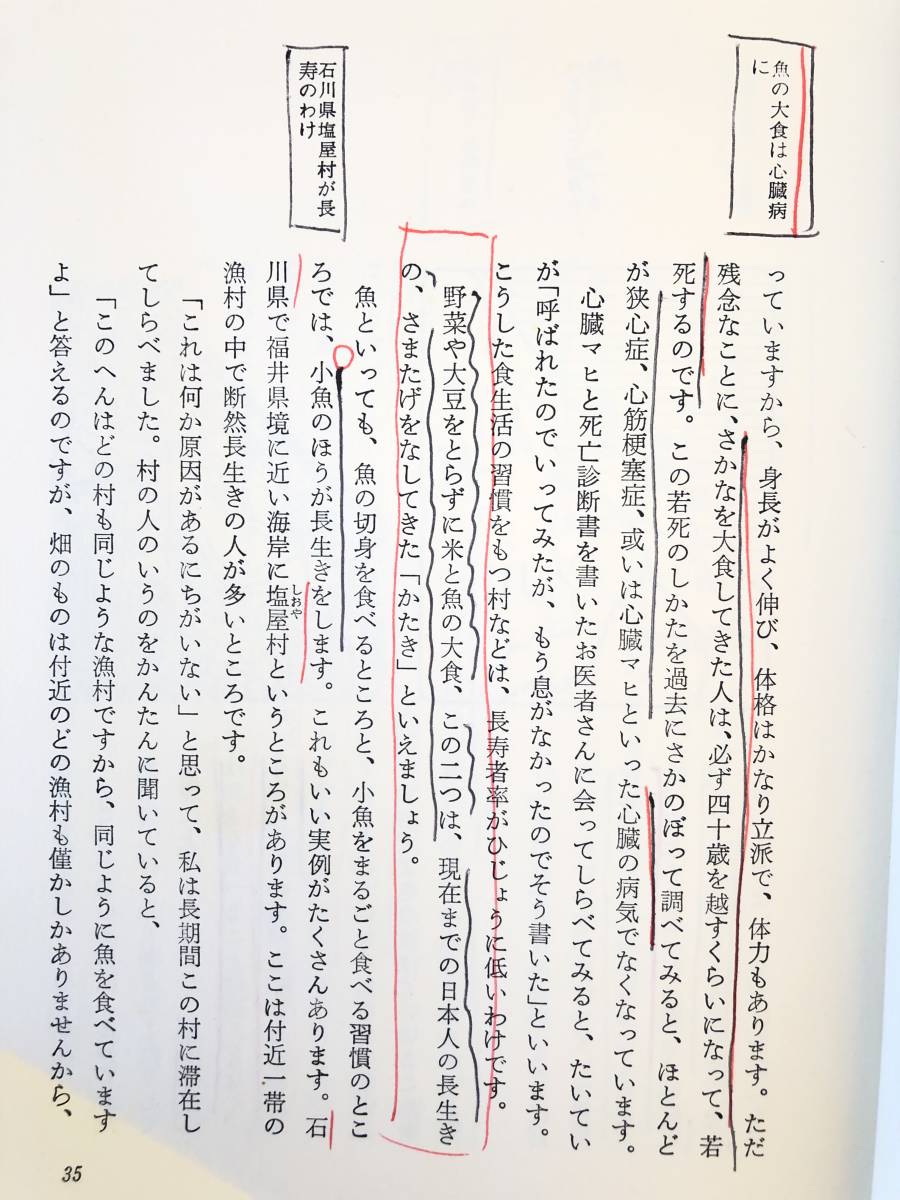 魚の大食は心臓病
に
っていますから、身長がよく伸び、体格はかなり立派で、体力もあります。ただ
残念なことに、さかなを大食してきた人は、必ず四十歳を越すくらいになって、若
死するのです。この若死のしかたを過去にさかのぼって調べてみると、ほとんど
が狭心症、心筋梗塞症、或いは心臓マヒといった心臓の病気でなくなっています。
心臓マヒと死亡診断書を書いたお医者さんに会ってしらべてみると、たいてい
が「呼ばれたのでいってみたが、もう息がなかったのでそう書いた」といいます。
こうした食生活の習慣をもつ村などは、長寿者率がひじょうに低いわけです。
野菜や大豆をとらずに米と魚の大食、この二つは、現在までの日本人の長生き
の、さまたげをなしてきた「かたき」といえましょう。
石川県塩屋村が長
寿のわけ
魚といっても、魚の切身を食べるところと、小魚をまるごと食べる習慣のとこ
ろでは、小魚のほうが長生きをします。これもいい実例がたくさんあります。石
川県で福井県境に近い海岸に塩屋村というところがあります。ここは付近一帯の
しおや
漁村の中で断然長生きの人が多いところです。
「これは何か原因があるにちがいない」と思って、私は長期間この村に滞在し
てしらべました。村の人のいうのをかんたんに聞いていると、
「このへんはどの村も同じような漁村ですから、同じように魚を食べています
よ」と答えるのですが、畑のものは付近のどの漁村も僅かしかありませんから、
35